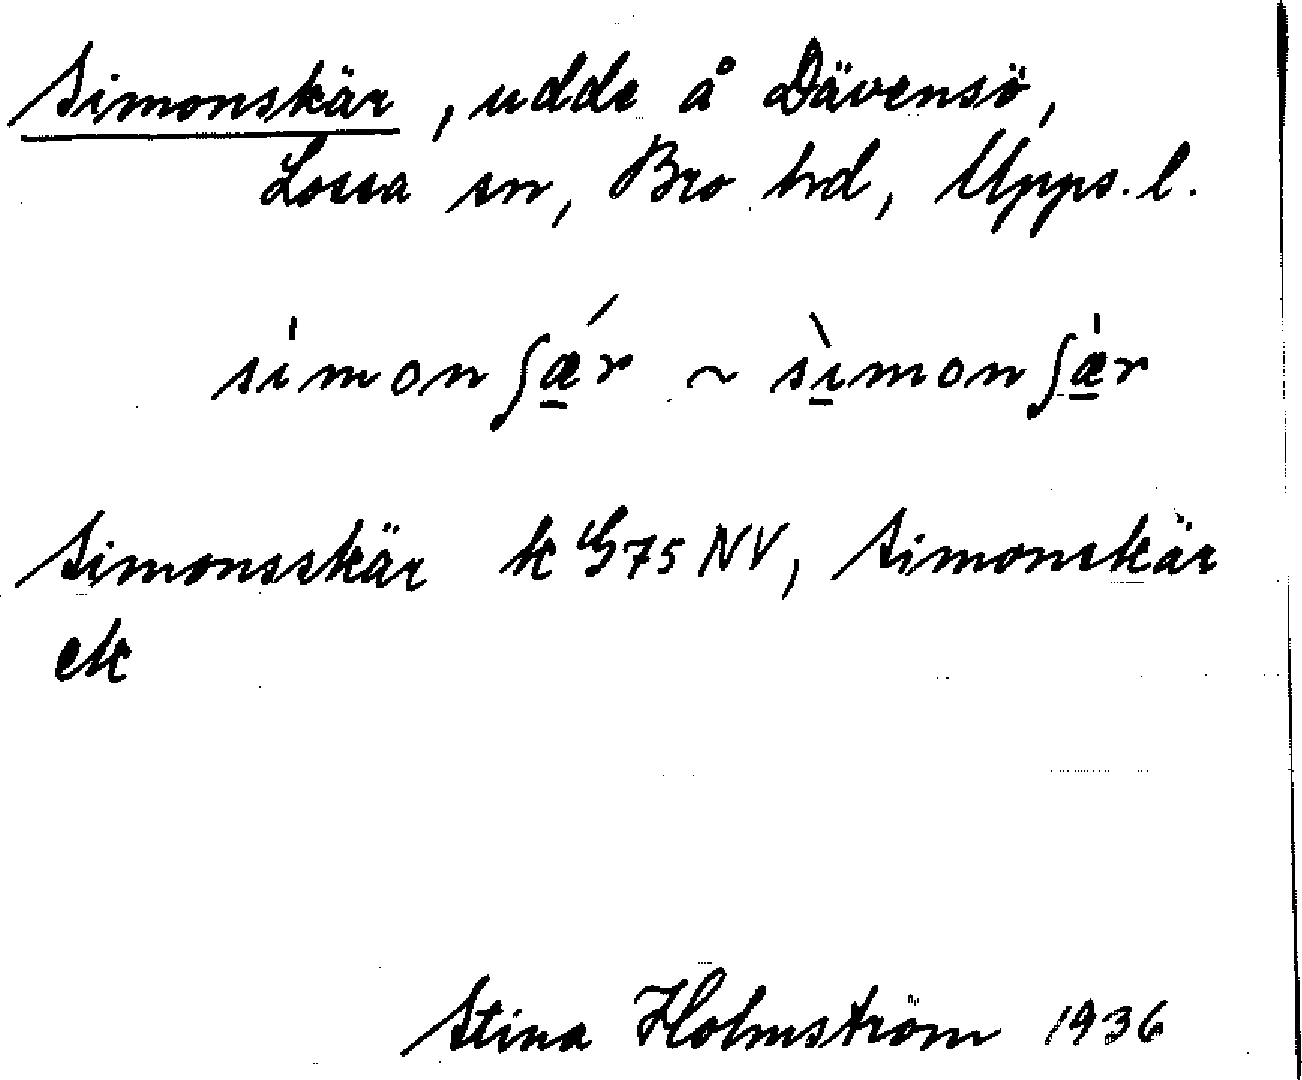 Simonskär, udde å Dävensö,
Lossa sn, Bro hd, Upps. l.
sìmonʃǽr ~ sìmonʃær
Simonsskär k G75 NV, Simonskär
ek
Stina Holmström 1936